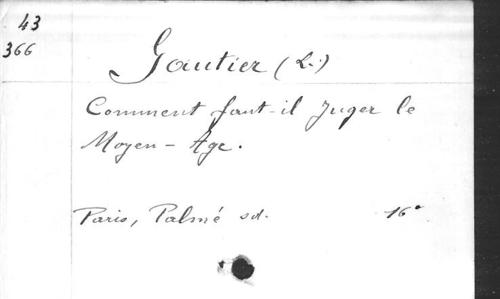 43
366
Gautier (L.)
Comment faut-il Juger le
Moyen-Age.
Paris, Palmé sd. 16°